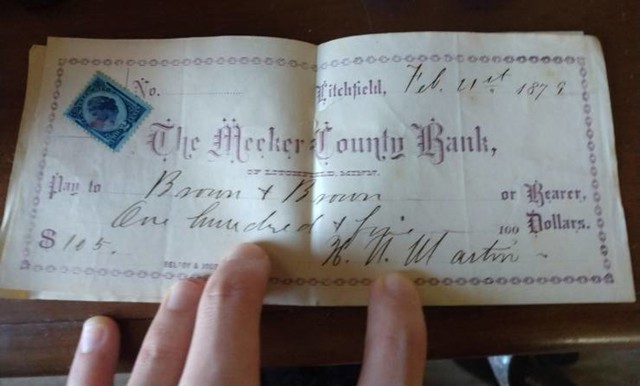 No.
Litchfield, Feb. 21st 1873
The Meeker County Bank,
OF LITCHFIELD, MINN.
Pay to Brown & Brown or Bearer,
One hundred & five 100 Dollars.
$ 105. H. N. Martin